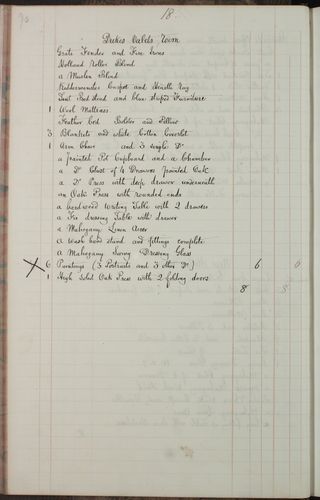 18.
Dukes Valets Room
Grate Fender and Fire Irons
Holland Roller Blind
a Muslin Blind
Kidderminster Carpet and Hearth Rug
Tent Bedstead and blue striped Furniture
1 Wool Mattress
Feather bed Bolster and Pillow
3 Blankets and white Cotton Coverlet
1 Arm Chair and 3 single Do
a painted Pot Cupboard and a Chamber
a Do Chest of 4 Drawers painted Oak
a Do Press with deep drawer underneath
an Oak Press with rounded ends
a hardwood Writing Table with 2 drawers
a Fir dressing Table with drawer
a Mahogany Linen Airer
a Wash hand stand and fittings complete
a Mahogany Swing Dressing Glass
6 Paintings (3 Portraits and 3 other Do) 6 6
1 High Solid Oak Press with 2 folding doors
8 8